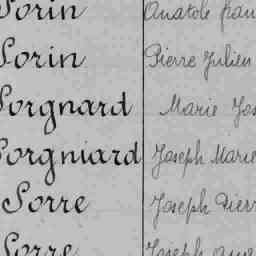 Sorin Anatole
Sorin Pierre Julien
Sorgnard Marie
Sorgniard Joseph Marie
Sorre Joseph
Sorre Joseph